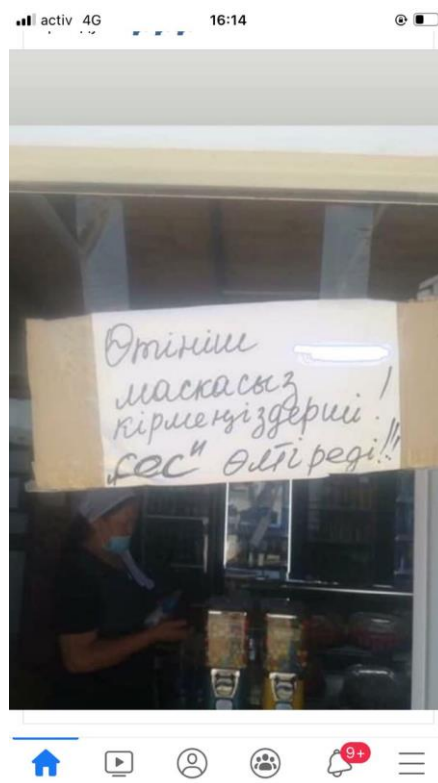 activ 4G 16:14
Өтініш
маскасыз
кірмеңіздерші!
„сес" өлтіреді!!!
9+